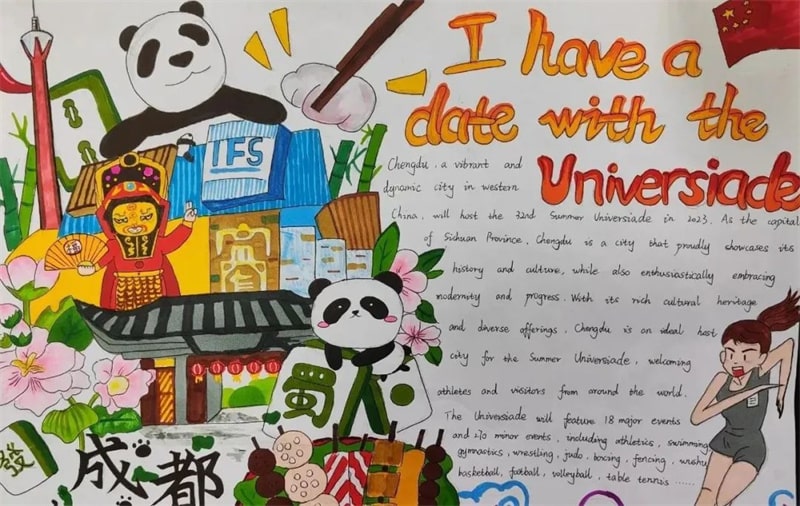 I have a
date with the
Universiade
Chengdu, a vibrant and
dynamic city in western
China, will host the 32nd Summer Universiade in 2023. As the capital
of Sichuan Province, Chengdu is a city that proudly showcases its
history and culture, while also enthusiastically embracing
modernity and progress. With its rich cultural heritage
and diverse offerings, Chengdu is an ideal host
city for the Summer Universiade, welcoming
athletes and visitors from around the world.
The Universiade will feature 18 major events
and 270 minor events, including athletics, swimming
gymnastics, wrestling, judo, boxing, fencing, wushu
basketball, football, volleyball, table tennis ......
IFS
福
蜀
發
成都